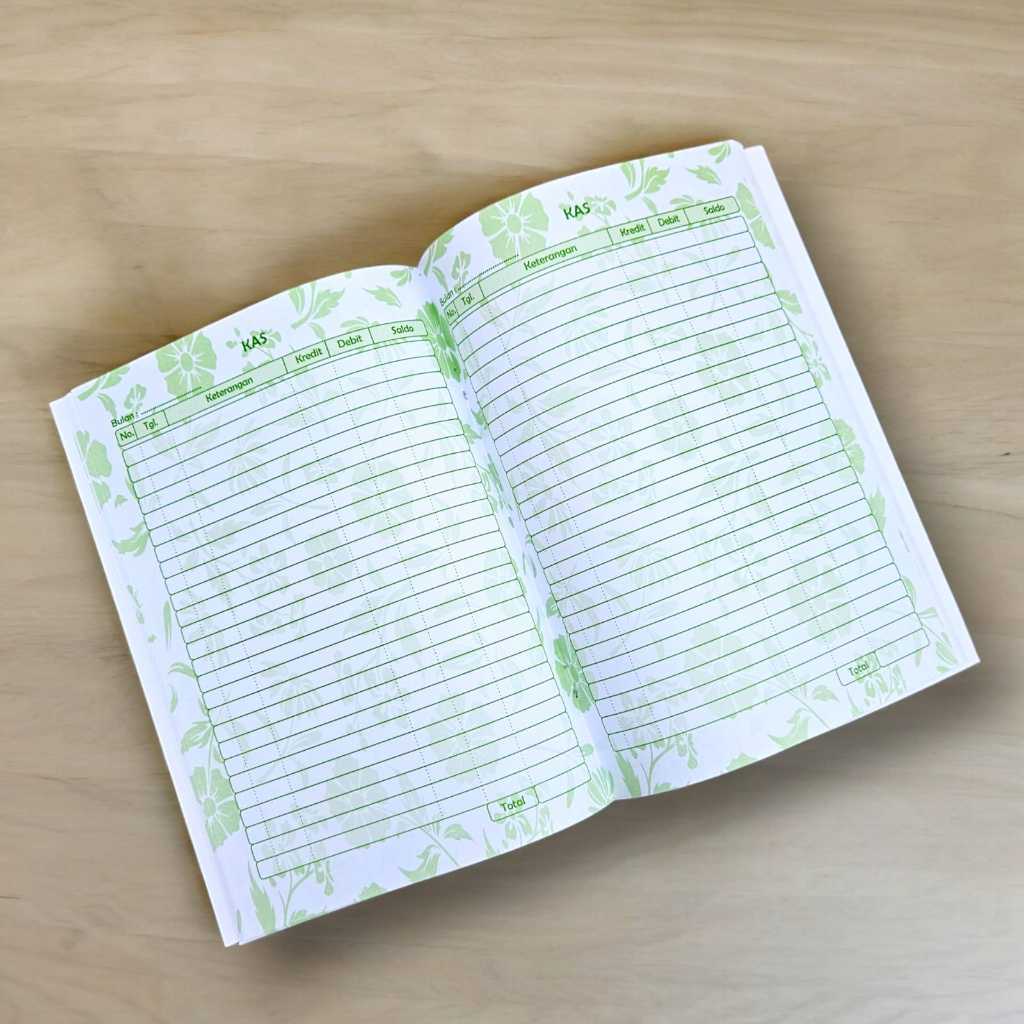 KAS
Bulan :
No. Tgl. Keterangan Kredit Debit Saldo
Total
KAS
Bulan :
No. Tgl. Keterangan Kredit Debit Saldo
Total